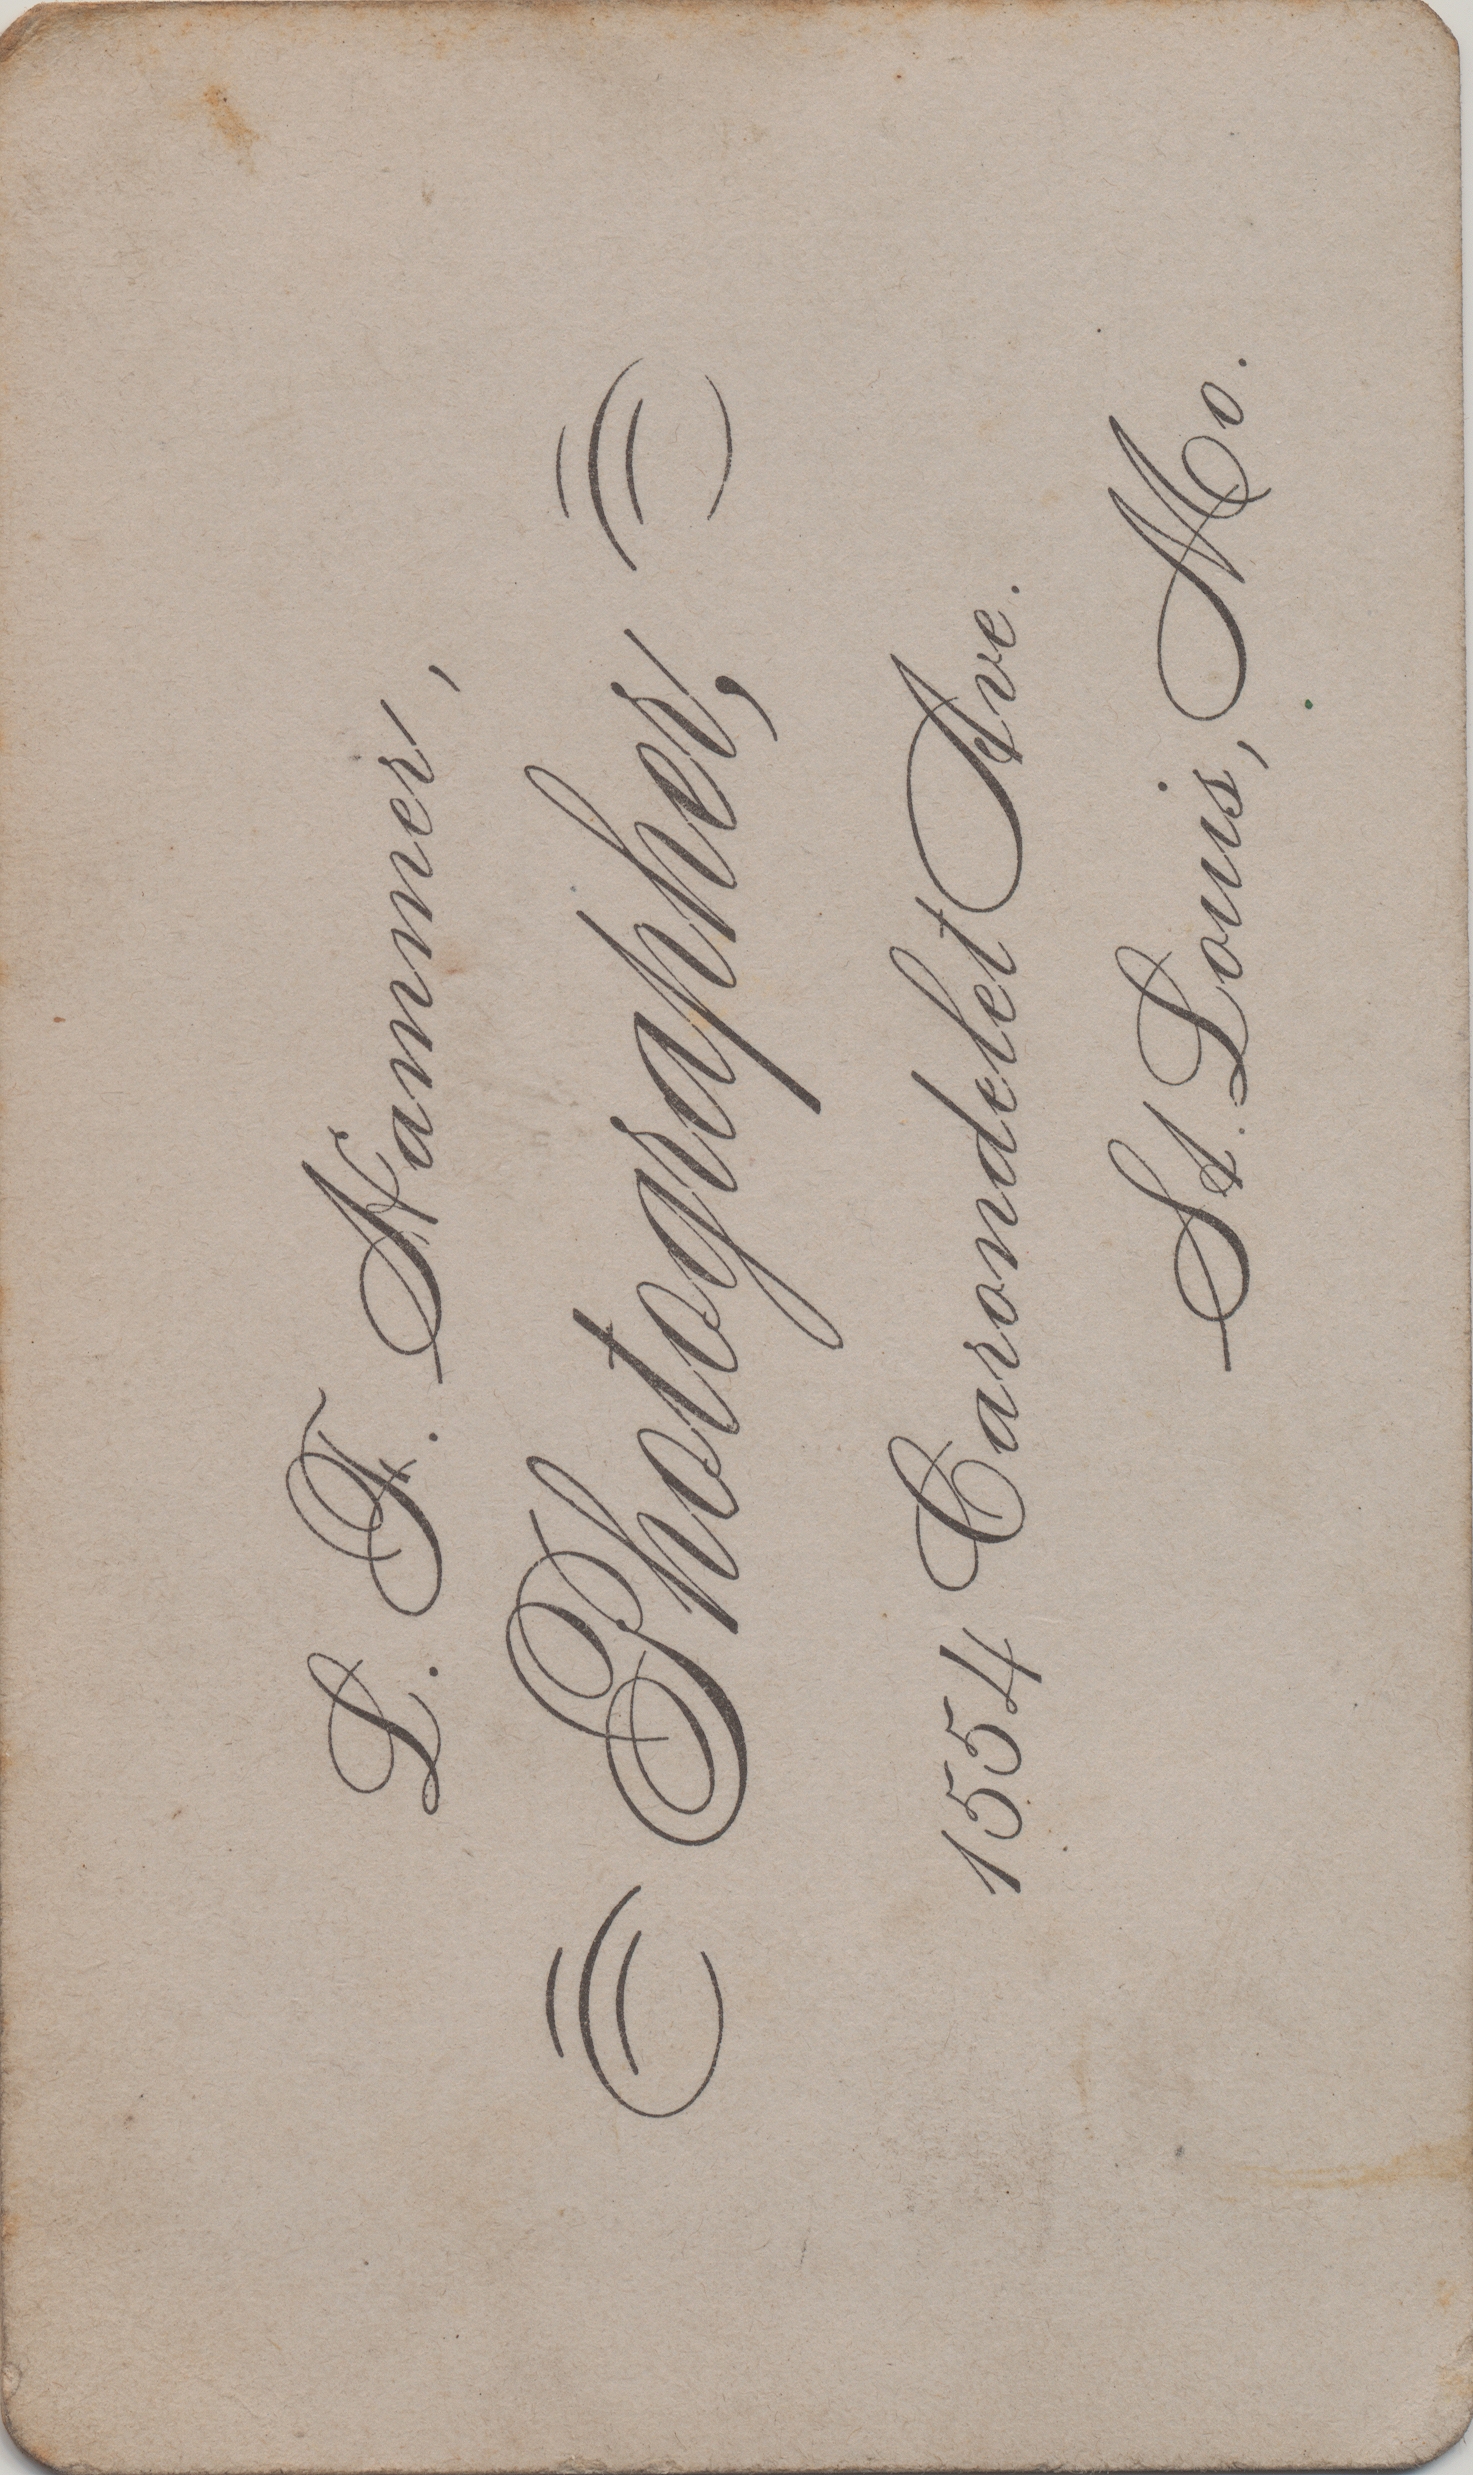 L. F. Hammer,
Photographer,
1554 Carondelet Ave.
St. Louis, Mo.